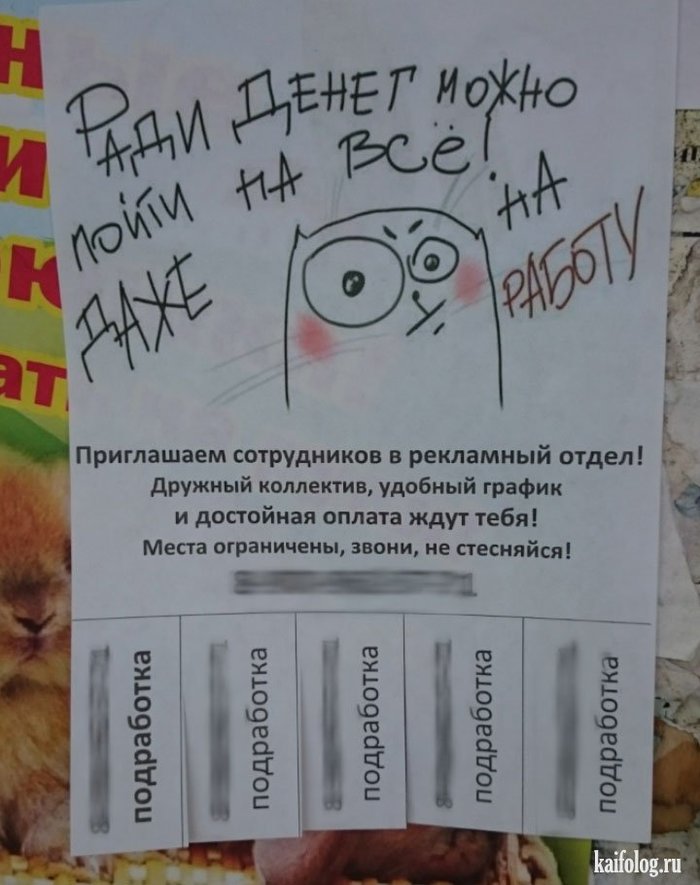 Ради денег можно
пойти на всё!
даже на
работу
Приглашаем сотрудников в рекламный отдел!
Дружный коллектив, удобный график
и достойная оплата ждут тебя!
Места ограничены, звони, не стесняйся!
подработка
подработка
подработка
подработка
подработка
kaifolog.ru